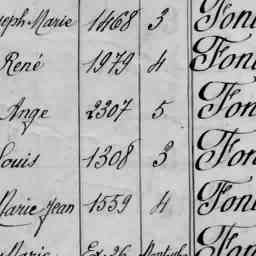 seph Marie 1468 3 Fon
René 1979 4 Fon
Ange 2307 5 Fon
Louis 1308 3 Fon
Marie Jean 1559 4 Fon
Marie Ex. 26 Fon